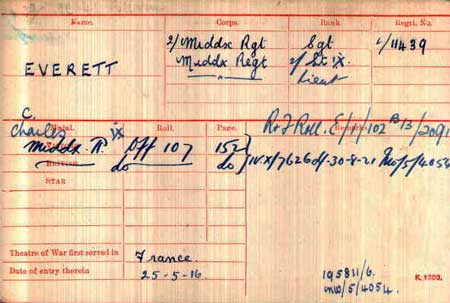 Name. Corps. Rank Regtl. No.
2/ Middx Rgt Sgt 4/11439
EVERETT Middx Regt Lieut
C.
Charles
Medal. Roll. Page. Remarks.
R & F Roll. E/1/102 B13/2091
Middx. R. Off 107 152
BRITISH do do IV.X/7626 d/-30-8-21 NW/5/4054
STAR
Theatre of War first served in France.
Date of entry therein 25-5-16.
195811/6.
NW/5/4054.
K. 1380.